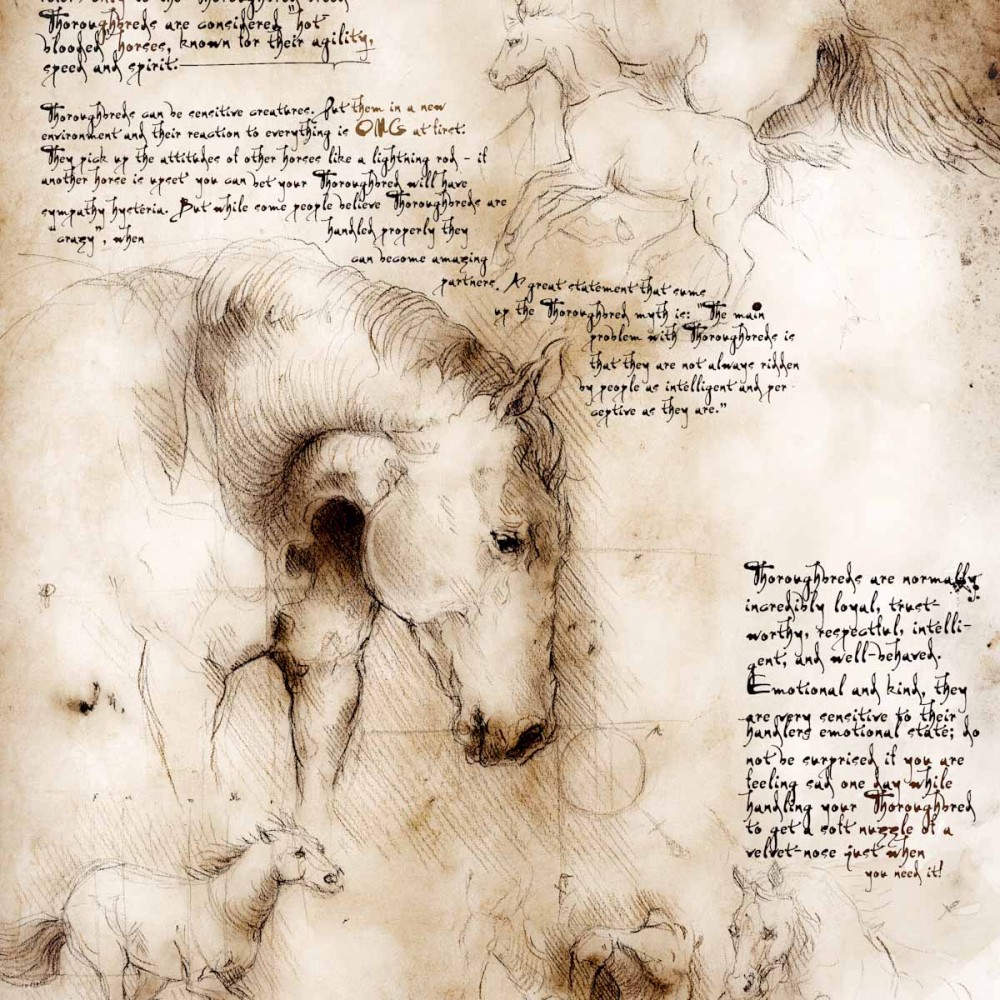 only to the Thoroughbred breed
Thoroughbreds are considered "hot
blooded" horses, known for their agility,
speed and spirit.
Thoroughbreds can be sensitive creatures. Put them in a new
environment and their reaction to everything is OMG at first.
They pick up the attitudes of other horses like a lightning rod - if
another horse is upset you can bet your Thoroughbred will have
sympathy hysteria. But while some people believe Thoroughbreds are
crazy", when handled properly they
can become amazing
partners. A great statement that sums
up the Thoroughbred myth is: "The main
problem with Thoroughbreds is
that they are not always ridden
by people as intelligent and per
ceptive as they are."
Thoroughbreds are normally
incredibly loyal, trust-
worthy, respectful, intelli-
gent, and well-behaved.
Emotional and kind, they
are very sensitive to their
handlers emotional state; do
not be surprised if you are
feeling sad one day while
handling your Thoroughbred
to get a soft nuzzle of a
velvet-nose just when
you need it!